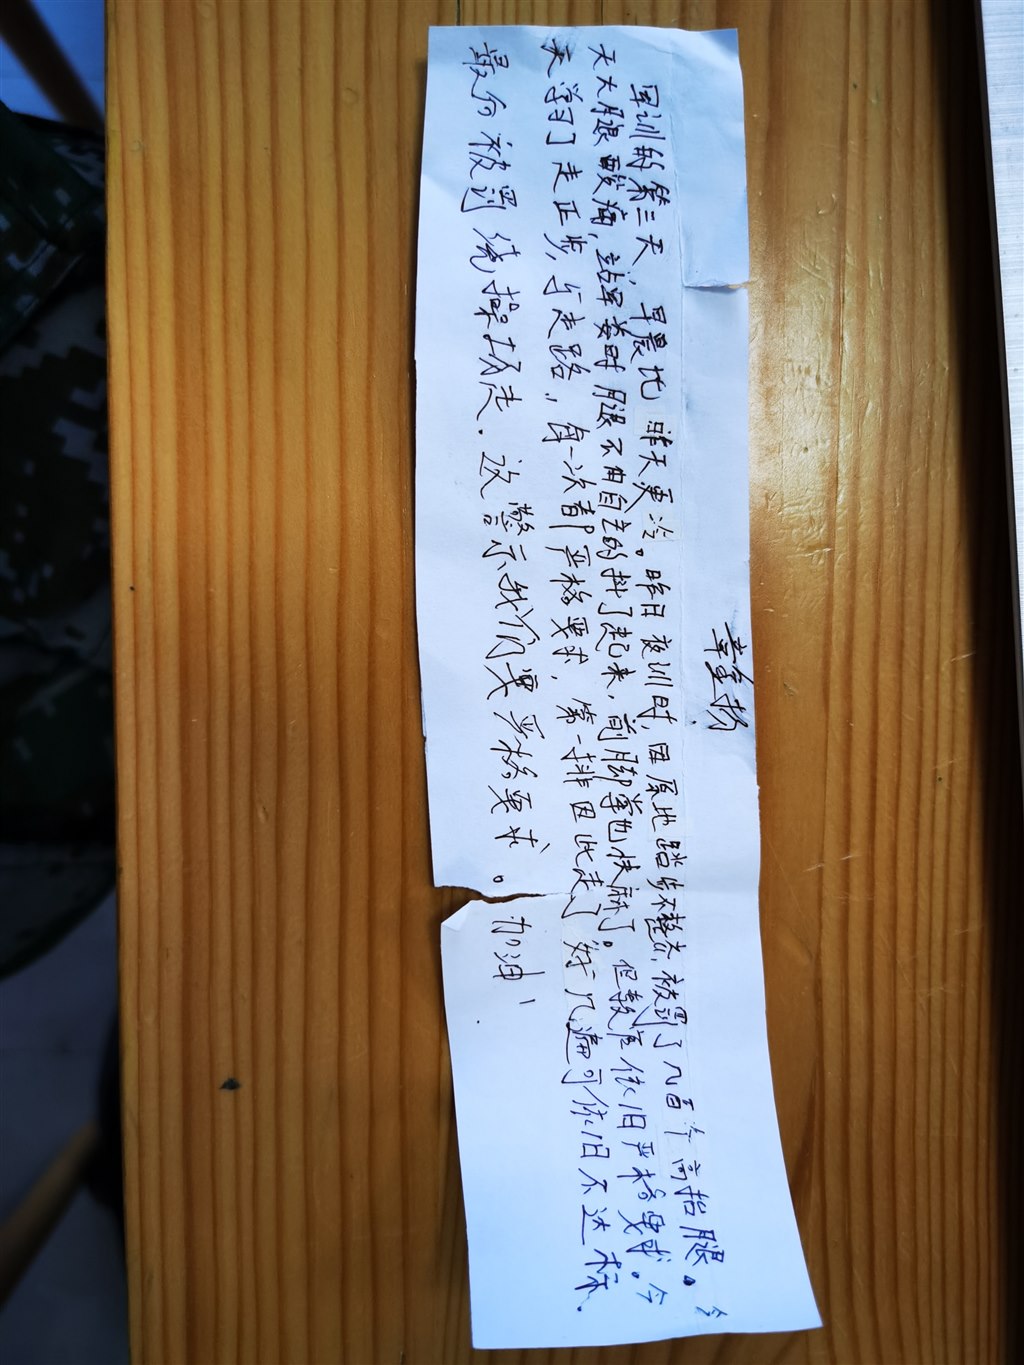 章鑫杨
军训的第三天,早晨比昨天更冷。昨日夜训时,因原地踏步不整齐,被罚了几百个高抬腿。今
天大腿酸痛,站军姿时腿不由自主的抖了起来,前脚掌也快麻了。但教官依旧严格要求。今
天学习了走正步,与走路,每一次都严格要求,第一排因此走了好几遍可依旧不达标.
最向被罚绕操场走.这警示我们要严格要求。加油!